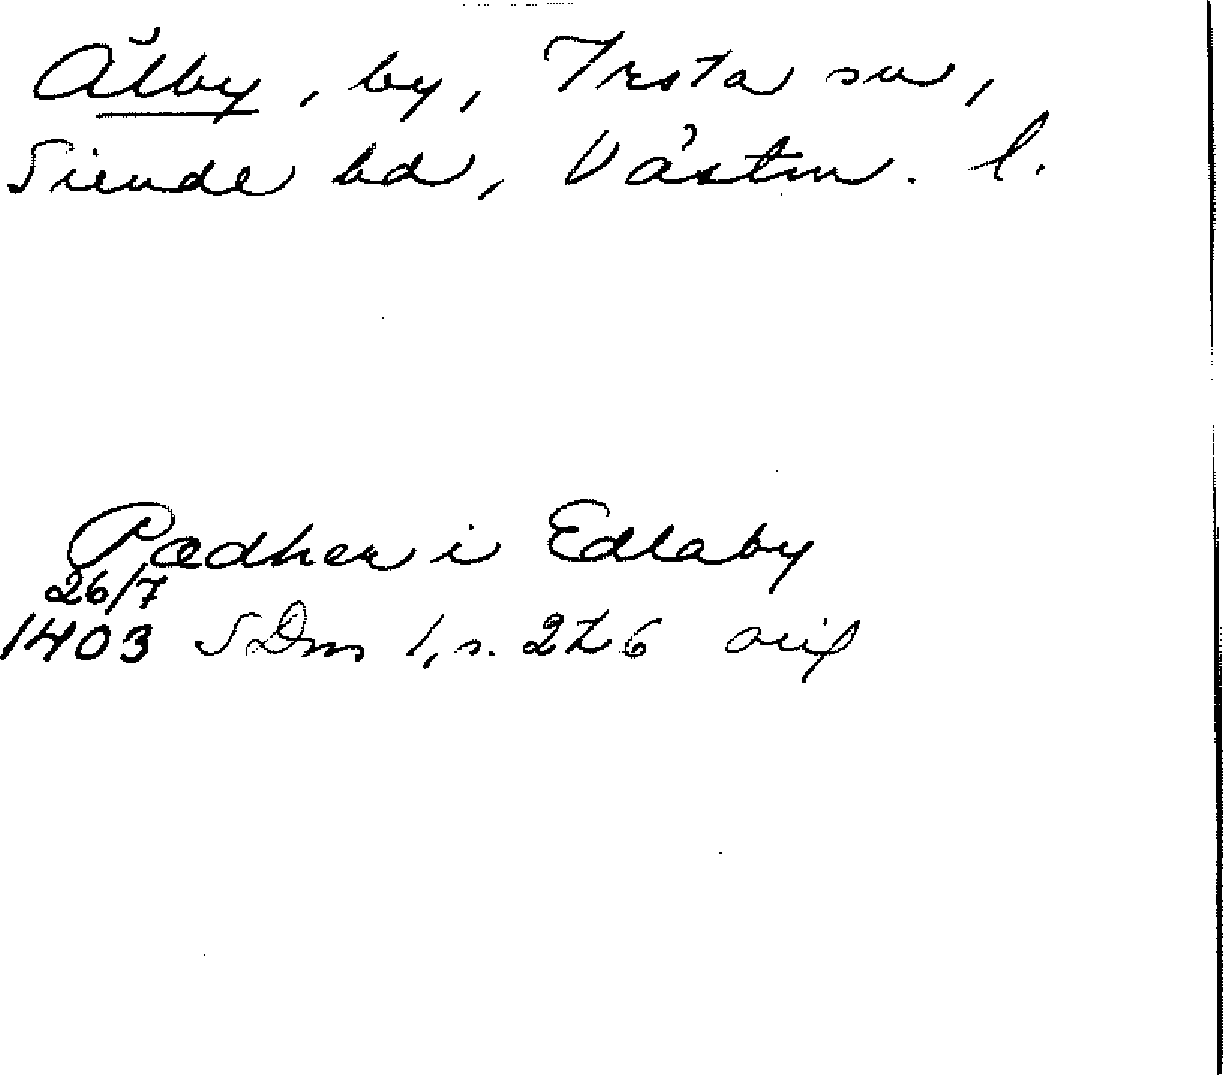 Älby, by, Irsta sn,
Siende hd, Västm. l.
Pædher i Edlaby
26/7
1403 SDns 1, s. 246 orig